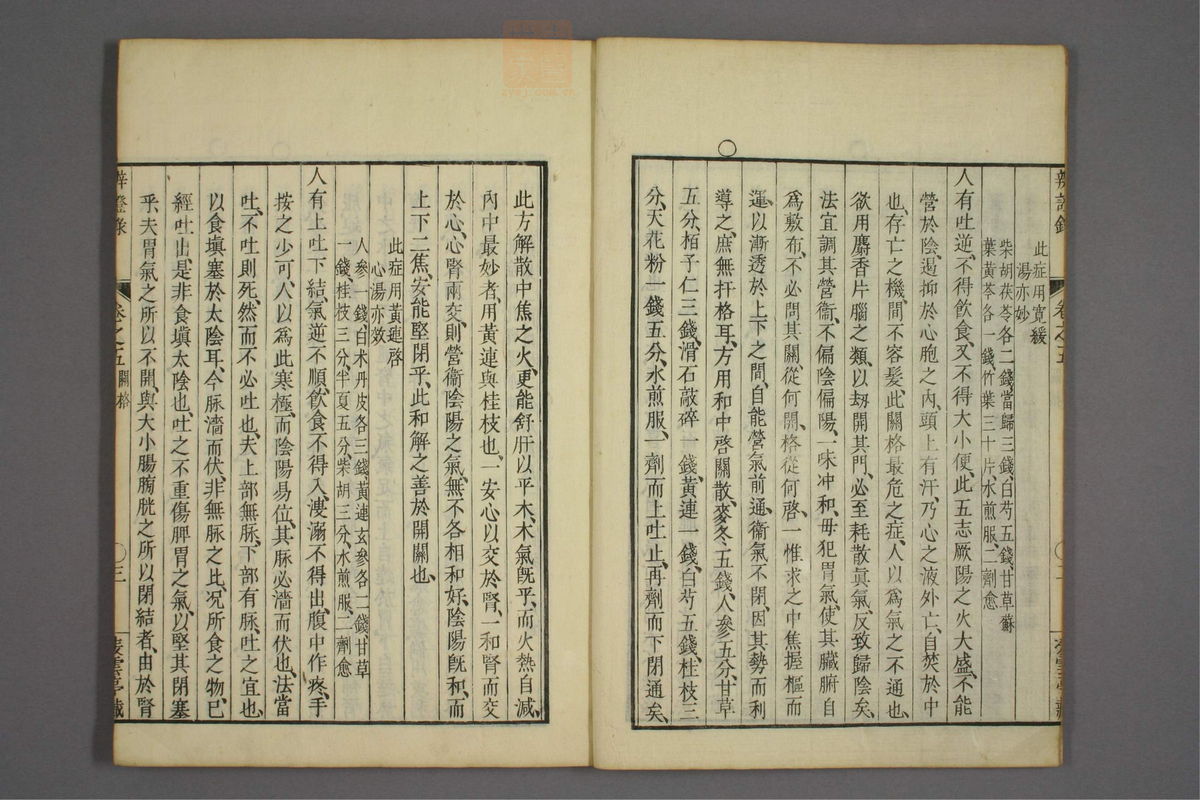 辨證錄 卷之五
此症用寬緩
湯亦妙
柴胡茯苓各二錢、當歸三錢、白芍五錢、甘草蘇
葉黃芩各一錢竹葉三十片水煎服、二劑愈
人有吐逆、不得飲食、又不得大小便、此五志厥陽之火大盛、不能
營於陰、遏抑於心胞之內、頭上有汗、乃心之液外亡、自焚於中
也、存亡之機、間不容髮、此關格最危之症、人以爲氣之不通也、
欲用麝香片腦之類、以刼開其門、必至耗散眞氣、反致歸陰矣、
法宜調其營衞、不偏陰偏陽、一味冲和、毋犯胃氣、使其臟腑自
爲敷布、不必問其關、從何開、格從何啓、一惟求之中焦握樞而
運、以漸透於上下之間、自能營氣前通、衞氣不閉、因其勢而利
導之、庶無扞格耳、方用和中啓關散、麥冬五錢、人參五分、甘草
五分、柏子仁三錢、滑石敲碎一錢、黃連一錢、白芍五錢、桂枝三
分、天花粉一錢五分、水煎服、一劑而上吐止、再劑而下閉通矣、
此方解散中焦之火、更能舒肝以平木、木氣旣平、而火熱自減、
內中最妙者、用黃連與桂枝也、一安心以交於腎、一和腎而交
於心、心腎兩交、則營衞陰陽之氣、無不各相和好、陰陽旣和、而
上下二焦、安能堅閉乎、此和解之善於開關也、
此症用黃連啓
心湯亦效
人參一錢白朮丹皮各三錢、黃連玄參各二錢甘草
一錢、桂枝三分、半夏五分柴胡三分、水煎服、二劑愈
人有上吐下結、氣逆不順、飲食不得入、溲溺不得出、腹中作疼、手
按之少可、人以爲此寒極、而陰陽易位、其脉必濇而伏也、法當
吐、不吐則死、然而不必吐也、夫上部無脉、下部有脉、吐之宜也、
以食塡塞於太陰耳、今脉濇而伏、非無脉之比、况所食之物、已
經吐出、是非食塡太陰也、吐之不重傷脾胃之氣、以堅其閉塞
乎、夫胃氣之所以不開、與大小腸膀胱之所以閉結者、由於腎
卷之五 關格 三